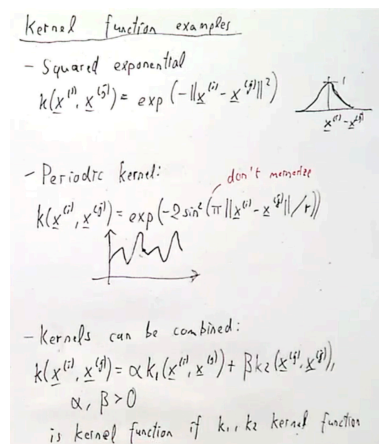 Kernel function examples
- Squared exponential
k(x^(i), x^(j)) = exp (-||x^(i) - x^(j)||²)
1
x^(i) - x^(j)
- Periodic kernel:
don't memorize
k(x^(i), x^(j)) = exp(-2 sin² (π||x^(i) - x^(j)||/r))
- Kernels can be combined:
k(x^(i), x^(j)) = αk₁(x^(i), x^(j)) + βk₂(x^(i), x^(j)),
α, β > 0
is kernel function if k₁, k₂ kernel function